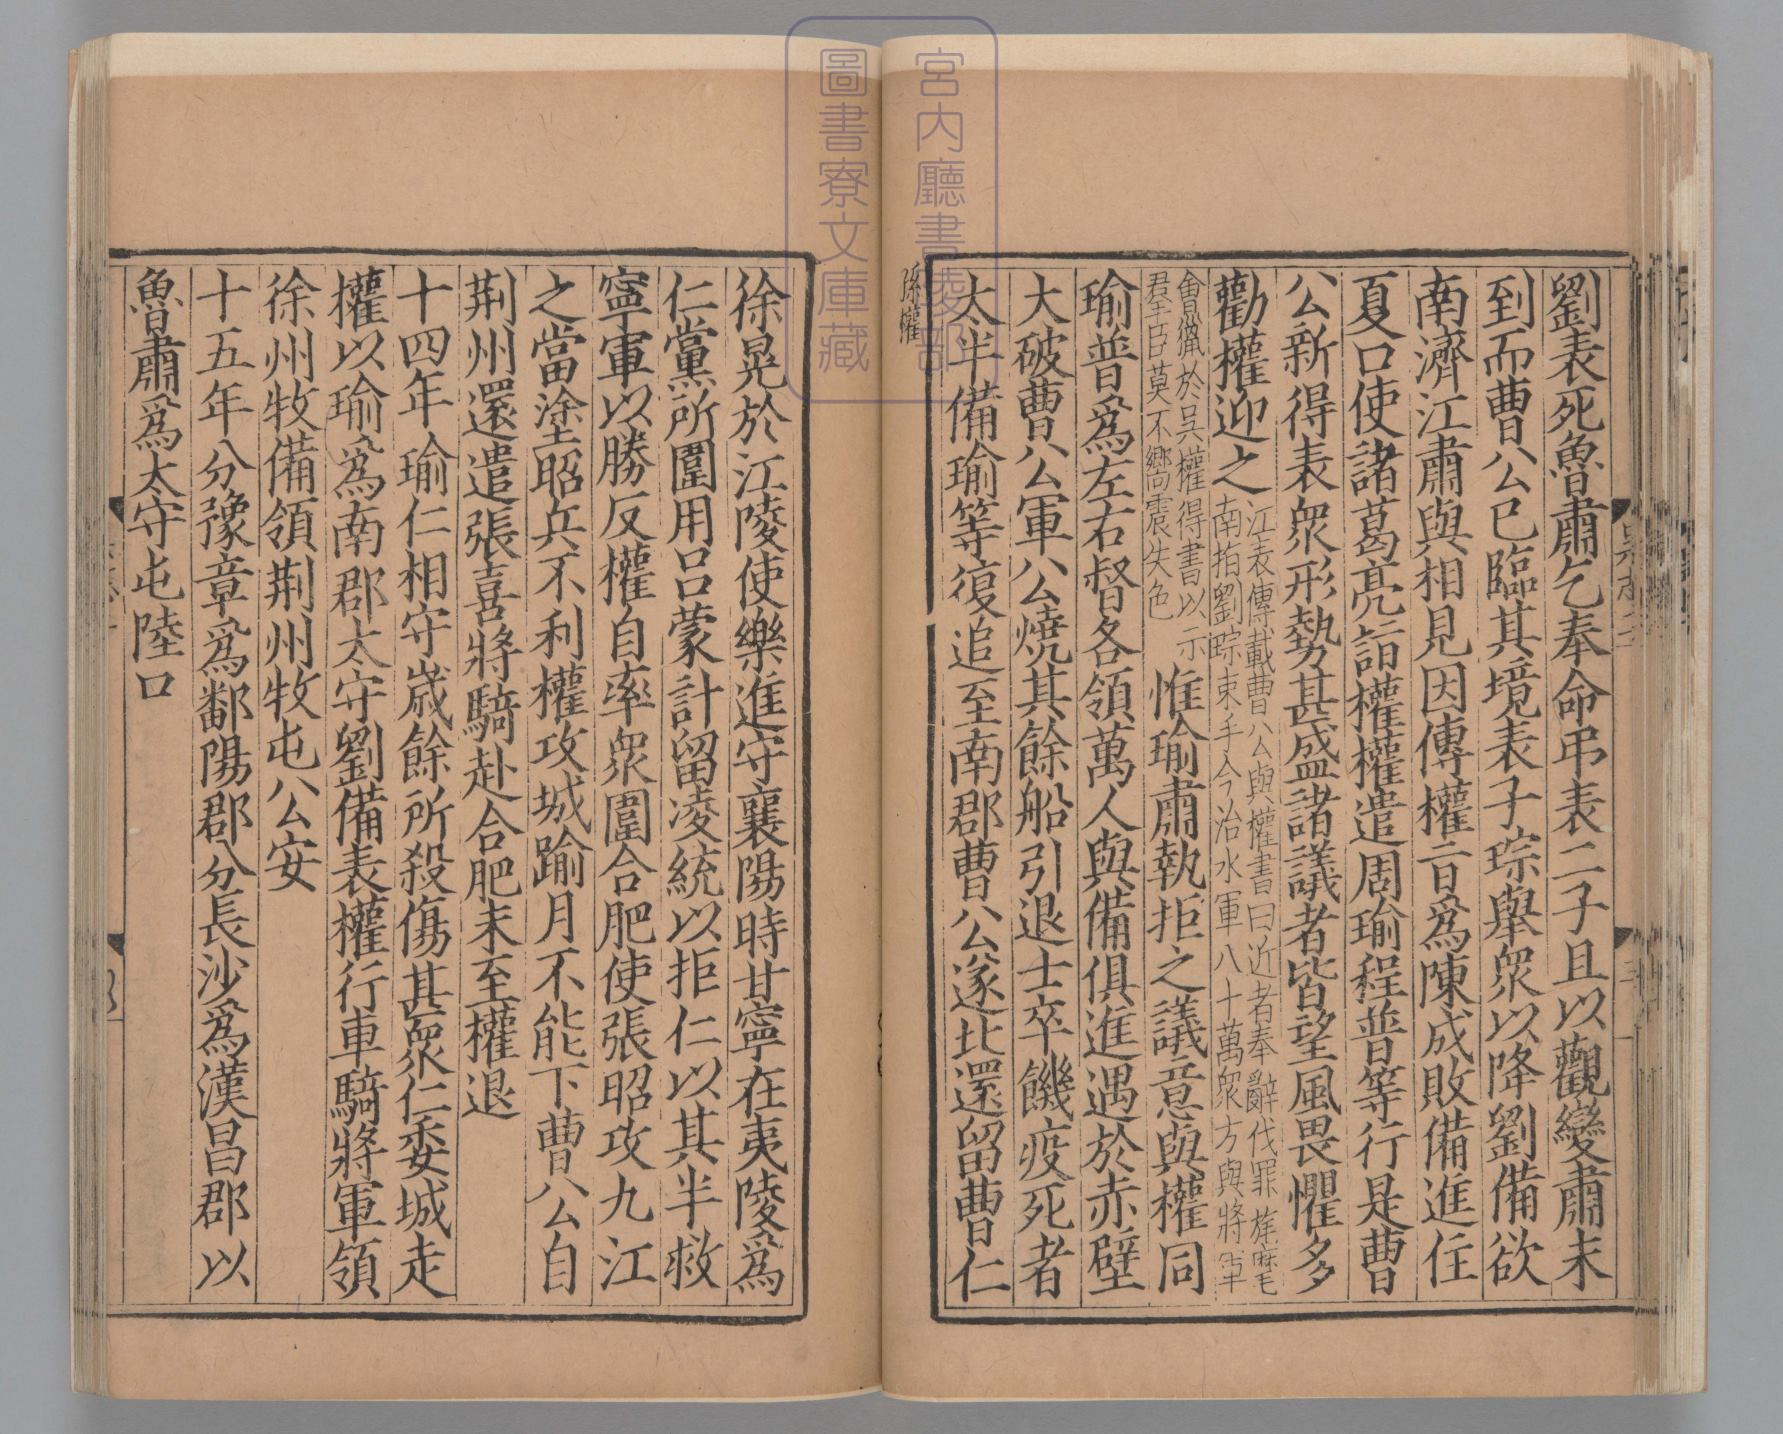 劉表死魯肅乞奉命弔表二子且以觀變肅未
到而曹公已臨其境表子琮舉衆以降劉備欲
南濟江肅與相見因傳權㫖爲陳成敗備進住
夏口使諸葛亮詣權權遣周瑜程普等行是曹
公新得表衆形勢甚盛諸議者皆望風畏懼多
勸權迎之
江表傳載曹公與權書曰近者奉辭伐罪旄麾
南指劉琮束手今治水軍八十萬衆方與將軍
會獵於吳權得書以示
羣臣莫不嚮震失色
惟瑜肅執拒之議意與權同
瑜普爲左右督各領萬人與備俱進遇於赤壁
大破曹公軍公燒其餘船引退士卒饑疫死者
太半備瑜等復追至南郡曹公遂北還留曹仁
孫權
徐晃於江陵使樂進守襄陽時甘寧在夷陵爲
仁黨所圍用呂蒙計留凌統以拒仁以其半救
寧軍以勝反權自率衆圍合肥使張昭攻九江
之當塗昭兵不利權攻城踰月不能下曹公自
荆州還遣張喜將騎赴合肥未至權退
十四年瑜仁相守歲餘所殺傷甚衆仁委城走
權以瑜爲南郡太守劉備表權行車騎將軍領
徐州牧備領荆州牧屯公安
十五年分豫章爲鄱陽郡分長沙爲漢昌郡以
魯肅爲太守屯陸口
宮内廳書陵部
圖書寮文庫藏